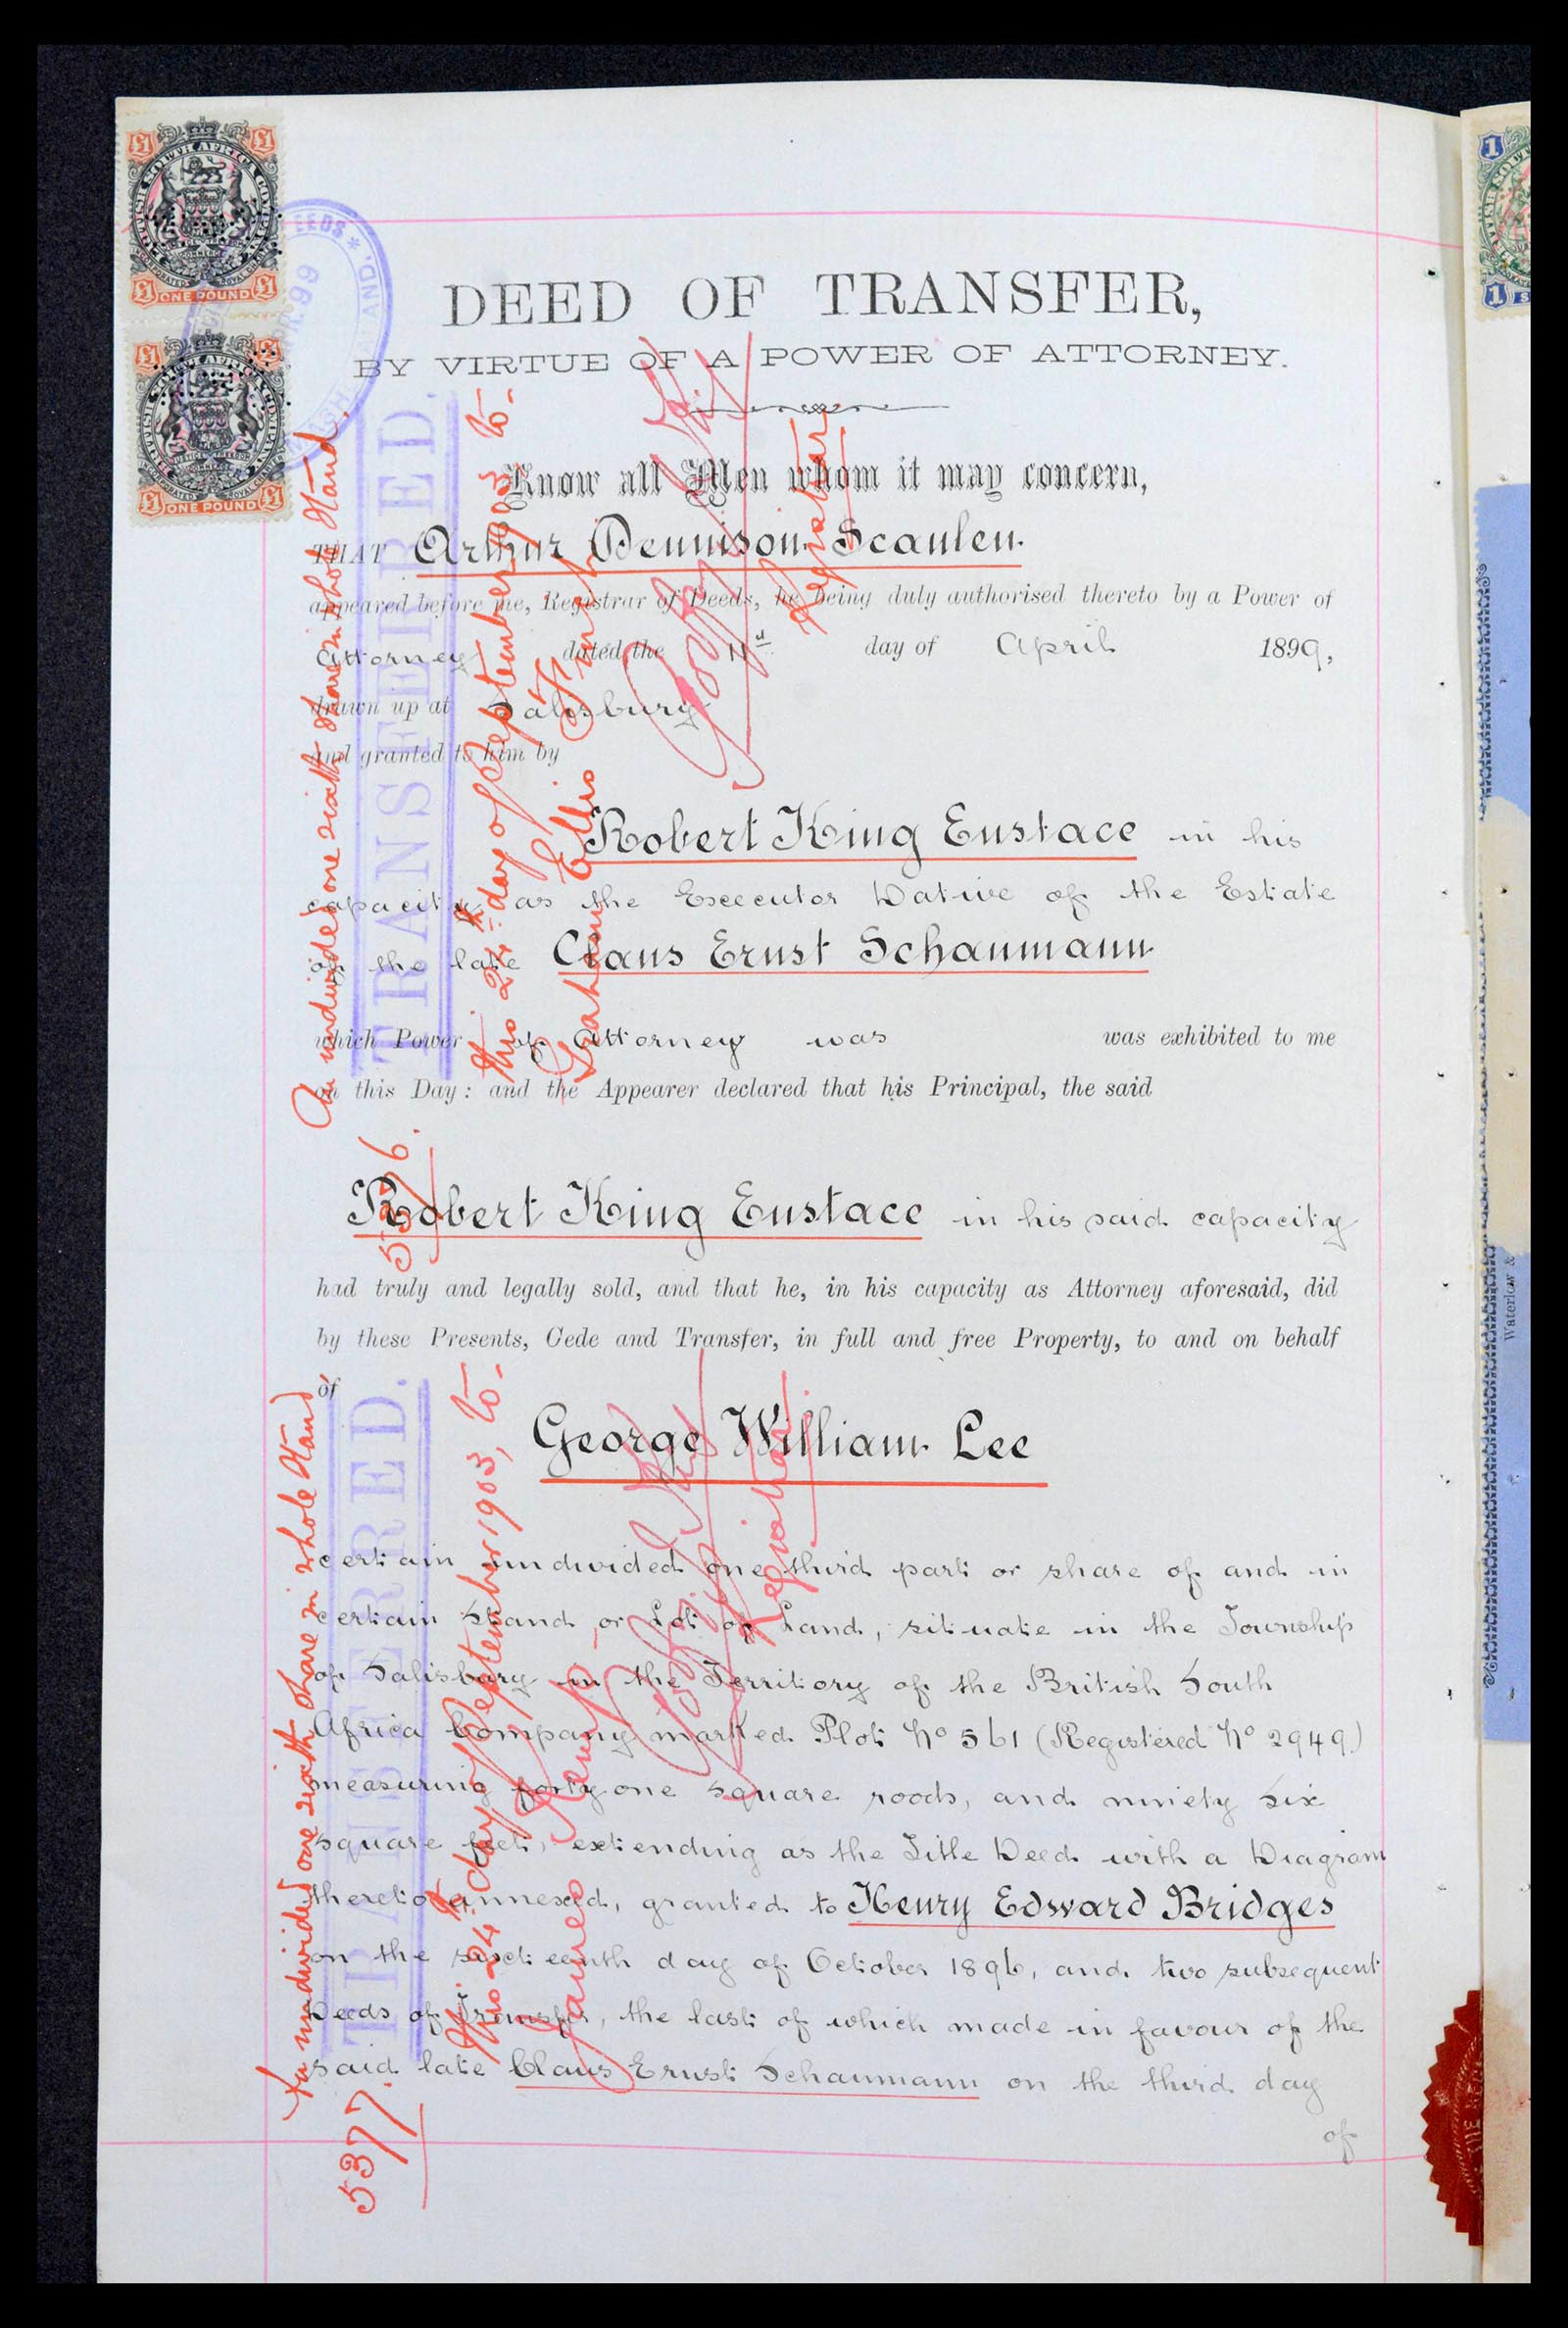 £1 £1
BRITISH SOUTH AFRICA COMPANY
JUSTICE FREEDOM
COMMERCE
INCORPORATED ROYAL CHARTER
£1 ONE POUND £1
£1 £1
BRITISH SOUTH AFRICA COMPANY
JUSTICE FREEDOM
COMMERCE
INCORPORATED ROYAL CHARTER
£1 ONE POUND £1
DEEDS *
99
AND.
1
1
DEED OF TRANSFER,
BY VIRTUE OF A POWER OF ATTORNEY.
Know all Men whom it may concern,
THAT Arthur Dennison Scanlen
appeared before me, Registrar of Deeds, he being duly authorised thereto by a Power of
Attorney dated the day of April 1899,
drawn up at Salisbury
and granted to him by
Robert King Eustace in his
capacity as the Executor Dative of the Estate
of the late Claus Ernst Schaumann
which Power of Attorney was was exhibited to me
on this Day: and the Appearer declared that his Principal, the said
Robert King Eustace in his said capacity
had truly and legally sold, and that he, in his capacity as Attorney aforesaid, did
by these Presents, Cede and Transfer, in full and free Property, to and on behalf
of
George William Lee
certain undivided one third part or share of and in
certain Stand or Lot of Land, situate in the Township
of Salisbury in the Territory of the British South
Africa Company marked Plot No 561 (Registered No 2949)
measuring forty one square roods, and ninety six
square feet, extending as the Title Deed with a Diagram
thereto annexed, granted to Henry Edward Bridges
on the sixteenth day of October 1896, and two subsequent
Deeds of Transfer, the last of which made in favour of the
said late Claus Ernst Schaumann on the third day
of
An undivided one sixth share in whole Stand.
TRANSFERRED.
this 24th day of September 1903 to-
Graham Ellis
Registrar
5376.
An undivided one sixth share in whole Stand
TRANSFERRED.
this 24th day of September 1903, to-
James
Registrar.
5377.
Waterlow &